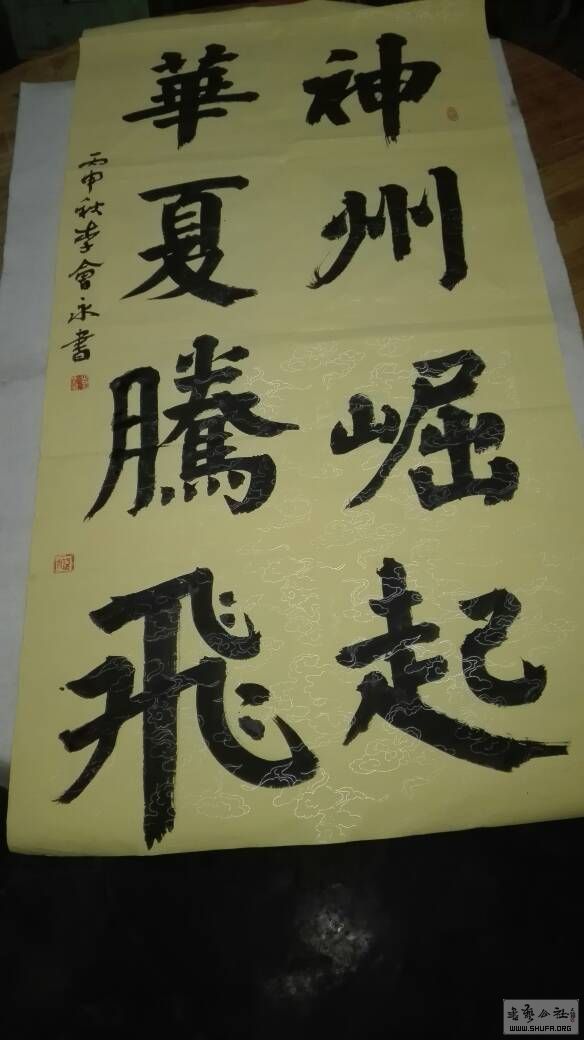 神州崛起
華夏騰飛
丙申秋李會永書
书艺公社
WWW.SHUFA.ORG